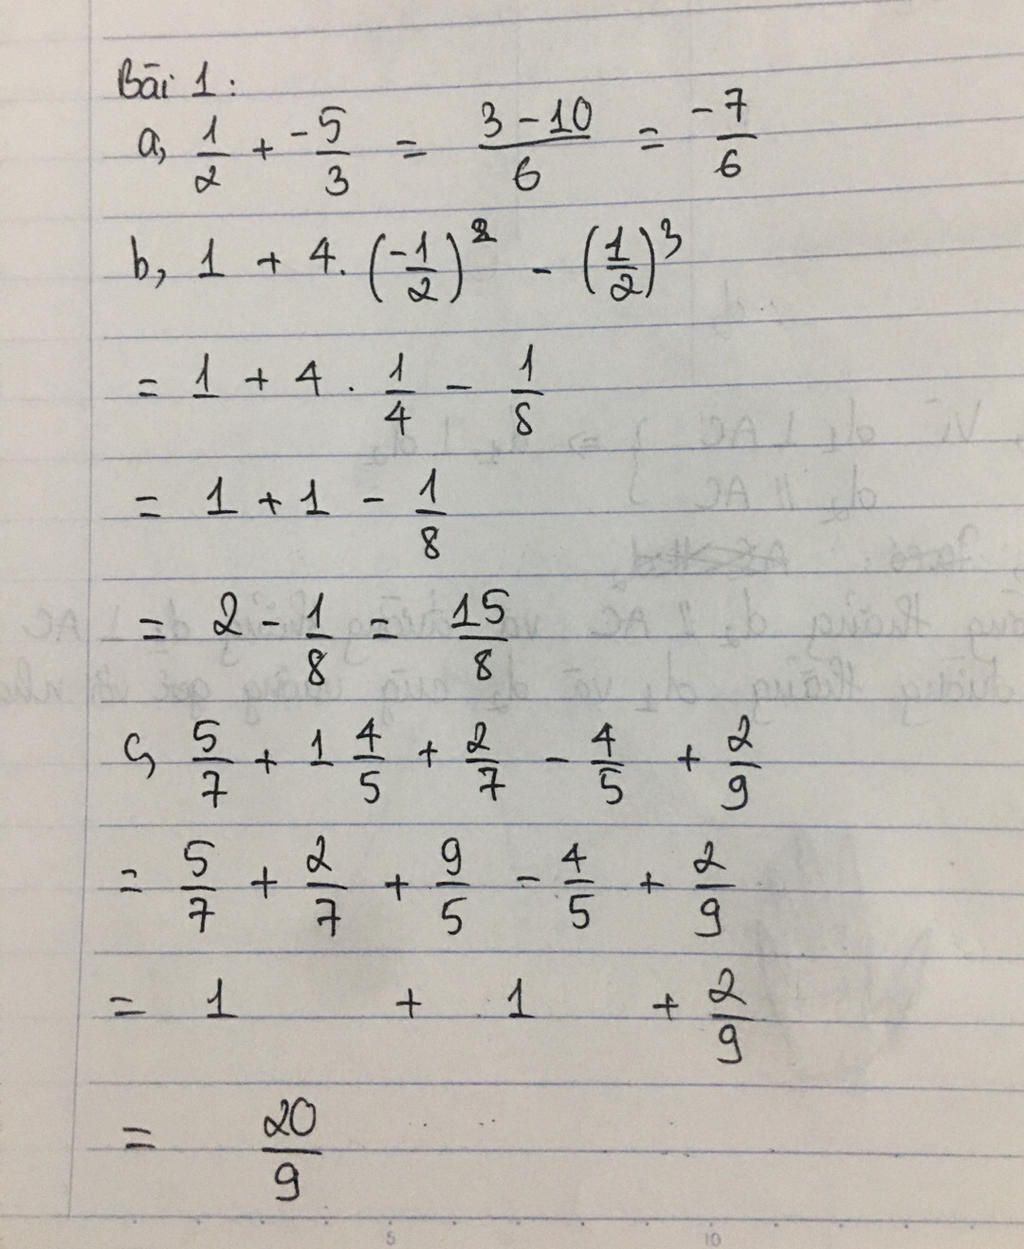 Bài 1:
a, 1/2 + -5/3 = (3 - 10)/6 = -7/6
b, 1 + 4. (-1/2)² - (1/2)³
= 1 + 4 . 1/4 - 1/8
= 1 + 1 - 1/8
= 2 - 1/8 = 15/8
c, 5/7 + 1 4/5 + 2/7 - 4/5 + 2/9
= 5/7 + 2/7 + 9/5 - 4/5 + 2/9
= 1 + 1 + 2/9
= 20/9
5 10